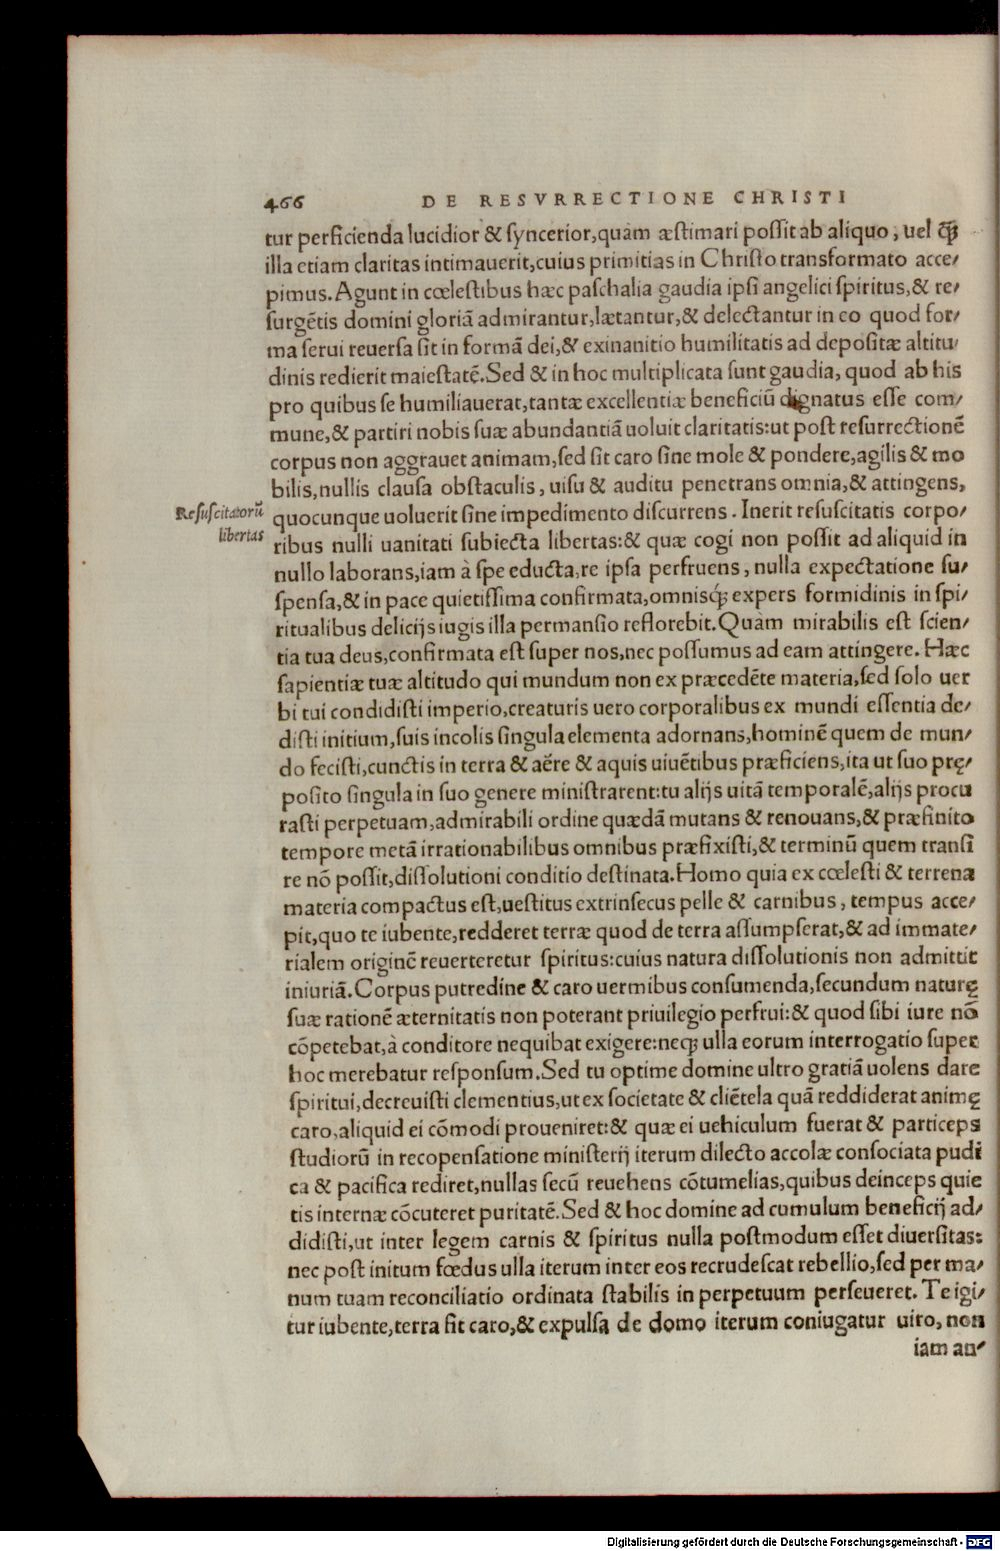 466 DE RESVRRECTIONE CHRISTI
tur perficienda lucidior & syncerior,quàm æstimari possit ab aliquo, uel q̃ꝫ
illa etiam claritas intimauerit,cuius primitias in Christo transformato acce/
pimus. Agunt in cœlestibus hæc paschalia gaudia ipsi angelici spiritus,& re/
surgẽtis domini gloriã admirantur,lætantur,& delectantur in eo quod for/
ma serui reuersa sit in formã dei,& exinanitio humilitatis ad depositæ altitu/
dinis redierit maiestatẽ. Sed & in hoc multiplicata sunt gaudia, quod ab his
pro quibus se humiliauerat,tantæ excellentiæ beneficiũ dignatus esse com/
mune,& partiri nobis suæ abundantiã uoluit claritatis:ut post resurrectionẽ
corpus non aggrauet animam,sed sit caro sine mole & pondere,agilis & mo
bilis,nullis clausa obstaculis, uisu & auditu penetrans omnia,& attingens,
Resuscitatorũ
libertas
quocunque uoluerit sine impedimento discurrens. Inerit resuscitatis corpo/
ribus nulli uanitati subiecta libertas:& quæ cogi non possit ad aliquid in
nullo laborans,iam à spe educta,re ipsa perfruens, nulla expectatione su/
spensa,& in pace quietissima confirmata,omnisq́ꝫ expers formidinis in spi/
ritualibus delicijs iugis illa permansio reflorebit. Quàm mirabilis est scien/
tia tua deus,confirmata est super nos,nec possumus ad eam attingere. Hæc
sapientiæ tuæ altitudo qui mundum non ex præcedẽte materia,sed solo uer
bi tui condidisti imperio,creaturis uero corporalibus ex mundi essentia de/
disti initium,suis incolis singula elementa adornans,hominẽ quem de mun/
do fecisti,cunctis in terra & aëre & aquis uiuẽtibus præficiens,ita ut suo prę/
posito singula in suo genere ministrarent:tu alijs uitã temporalẽ,alijs procu
rasti perpetuam,admirabili ordine quædã mutans & renouans,& præfinito
tempore metã irrationabilibus omnibus præfixisti,& terminũ quem transi
re nõ possit,dissolutioni conditio destinata. Homo quia ex cœlesti & terrena
materia compactus est,uestitus extrinsecus pelle & carnibus, tempus acce/
pit,quo te iubente,redderet terræ quod de terra assumpserat,& ad immate/
rialem originẽ reuerteretur spiritus:cuius natura dissolutionis non admittit
iniuriã. Corpus putredine & caro uermibus consumenda,secundum naturę
suæ rationẽ æternitatis non poterant priuilegio perfrui:& quod sibi iure nõ
cõpetebat,à conditore nequibat exigere:neqꝫ ulla eorum interrogatio super
hoc merebatur responsum. Sed tu optime domine ultro gratiã uolens dare
spiritui,decreuisti clementius,ut ex societate & cliẽtela quã reddiderat animę
caro,aliquid ei cõmodi proueniret:& quæ ei uehiculum fuerat & particeps
studiorũ in recopensatione ministerij iterum dilecto accolæ consociata pudi
ca & pacifica rediret,nullas secũ reuehens cõtumelias,quibus deinceps quie
tis internæ cõcuteret puritatẽ. Sed & hoc domine ad cumulum beneficij ad/
didisti,ut inter legem carnis & spiritus nulla postmodum esset diuersitas:
nec post initum fœdus ulla iterum inter eos recrudescat rebellio,sed per ma/
num tuam reconciliatio ordinata stabilis in perpetuum perseueret. Te igi/
tur iubente,terra sit caro,& expulsa de domo iterum coniugatur uiro, non
iam an/
Digitalisierung gefördert durch die Deutsche Forschungsgemeinschaft - DFG